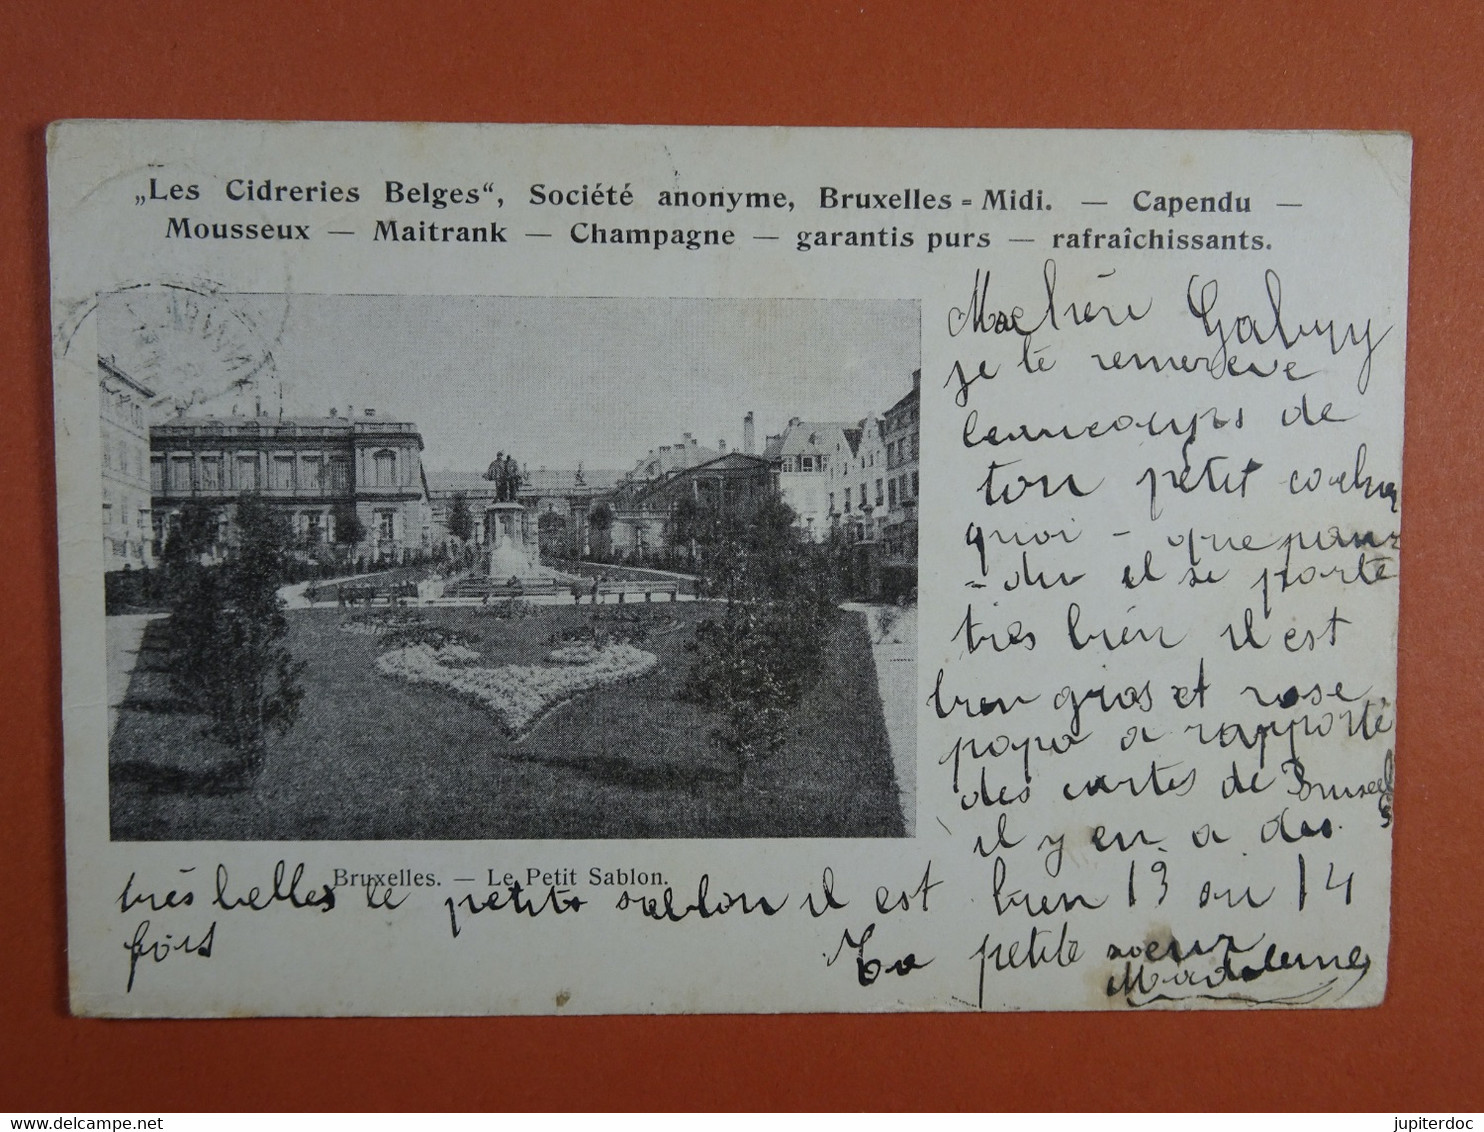 „Les Cidreries Belges“, Société anonyme, Bruxelles = Midi. — Capendu —
Mousseux — Maitrank — Champagne — garantis purs — rafraîchissants.
Ma chère Gabuy
je te remercie
beaucoups de
ton petit cochon
quoi - que pour
- du il se porte
très bien il est
bien gros et rose
papa a rapporté
des cartes de Bruxelles
il y en a des
Bruxelles. — Le Petit Sablon.
très belles le petits sablon il est bien 13 ou 14
fois
Ta petite soeur
Madeleine
delcampe.net
jupiterdoc